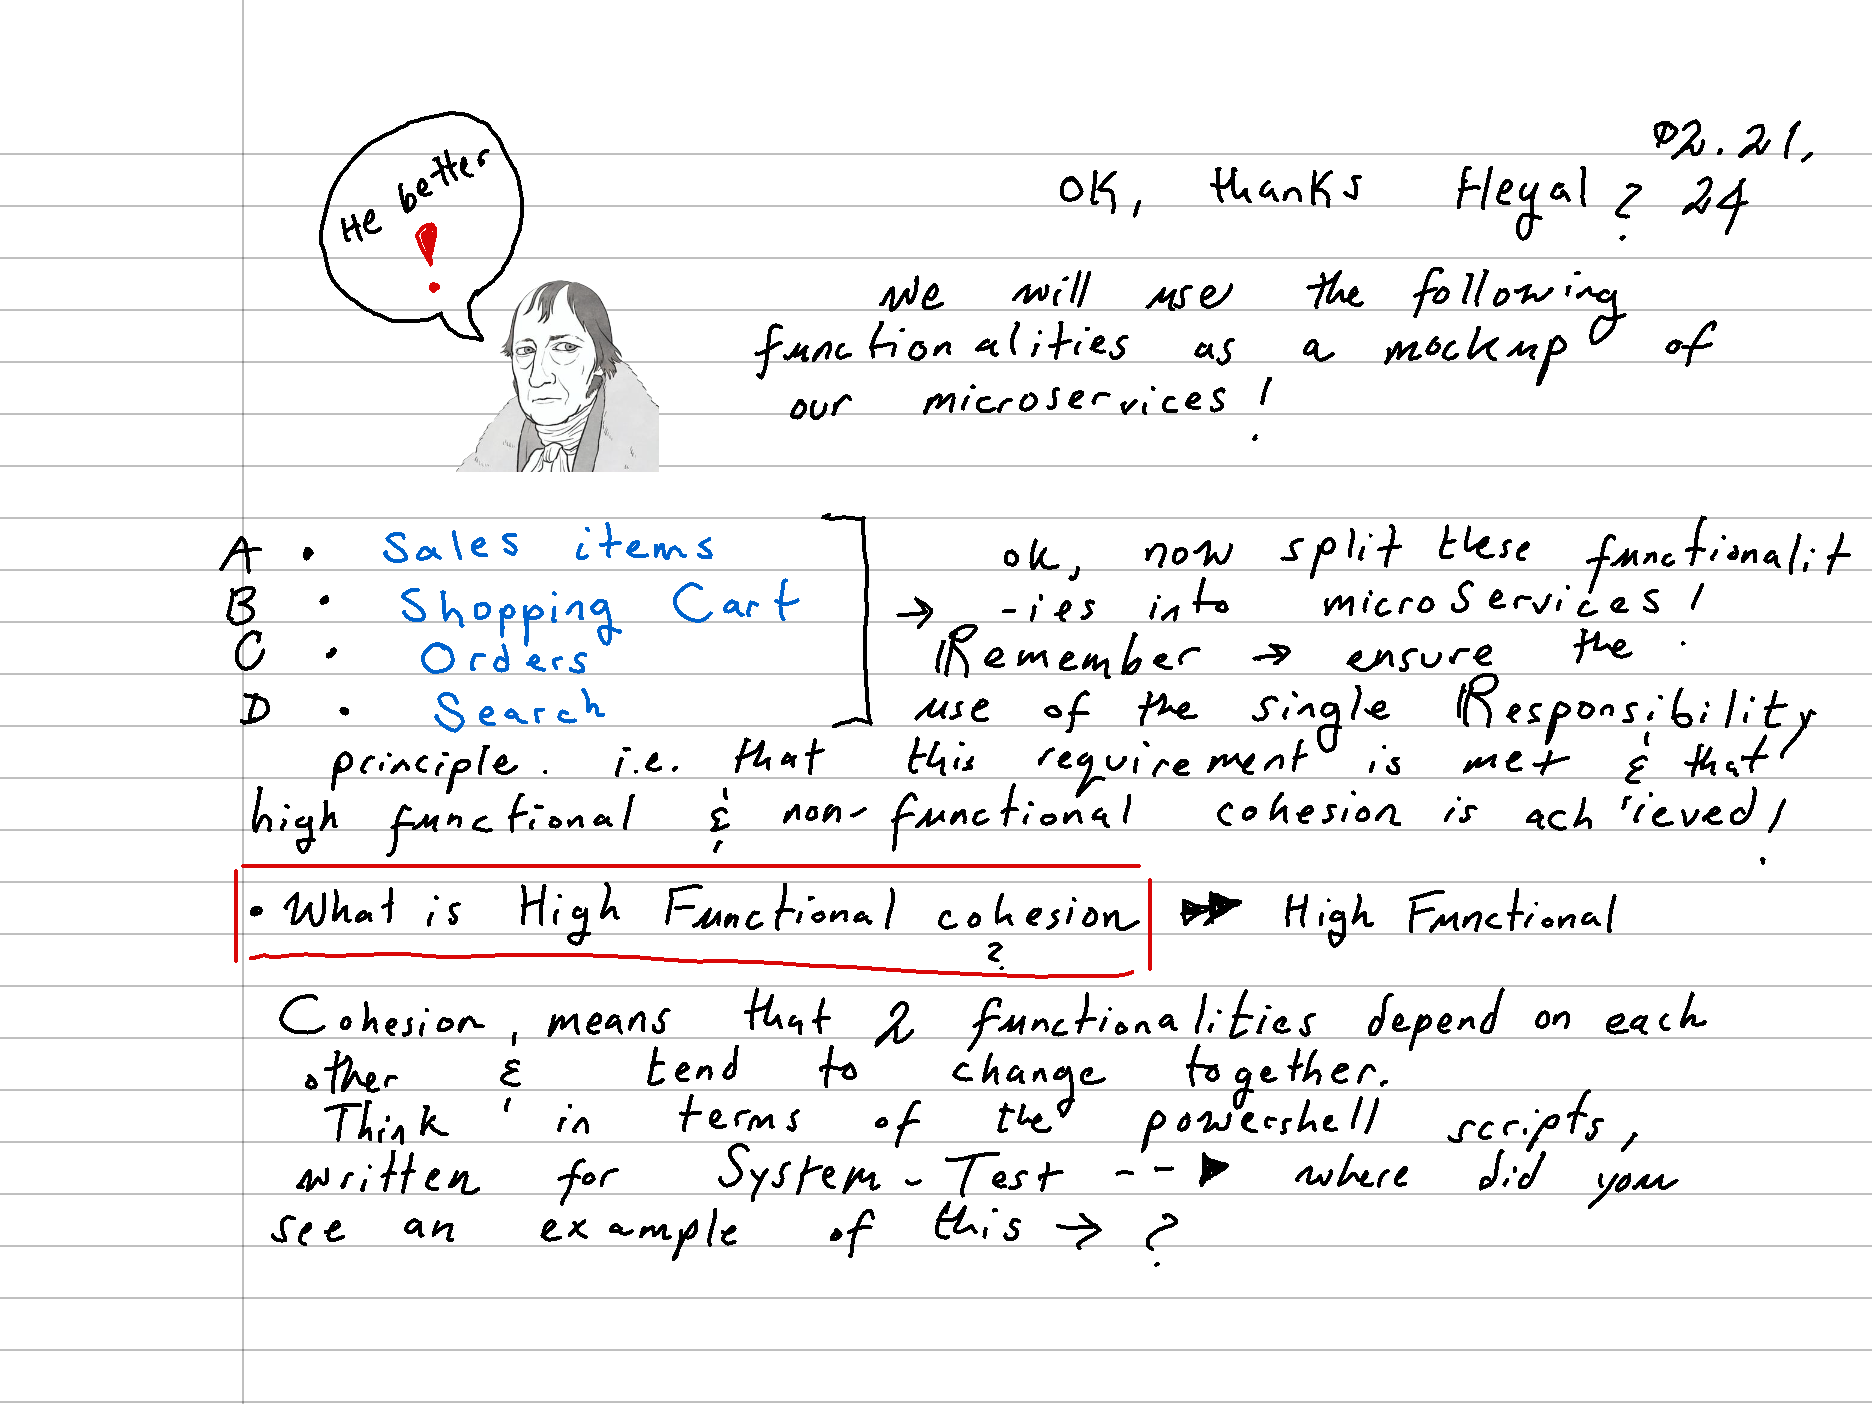 He better
!
02.21,
OK, thanks Hegal ? 24
we will use the following
functionalities as a mockup of
our microservices !
A • Sales items
B • Shopping Cart
C • Orders
D • Search
ok, now split these functionalit
→ -ies into microservices !
Remember → ensure the
use of the single Responsibility
principle. i.e. that this requirement is met & that
high functional & non-functional cohesion is achieved!
• What is High Functional cohesion ? → High Functional
Cohesion, means that 2 functionalities depend on each
other & tend to change together.
Think in terms of the powershell scripts,
written for System-Test --► where did you
see an example of this → ?